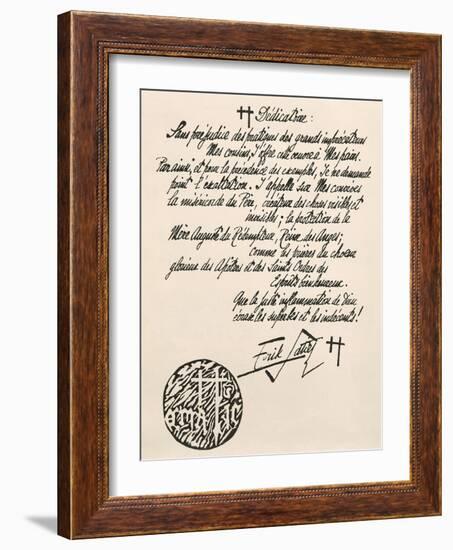 Dédicatoire :
Sans préjudice des pratiques des grands imprécateurs
Mes cousins, J'offre cette œuvre à Mes pairs.
Par ainsi, et pour la précédence des exemples, Je ne demande
point l'exaltation. J'appelle sur Mes convives
la miséricorde du Père, créateur des choses visibles et
invisibles ; la protection de la
Mère Auguste du Rédempteur, Reine des Anges ;
comme les prières du chœur
glorieux des Apôtres et des Saints Ordres des
Esprits bienheureux.
Que la juste inflammation de Dieu
écrase les superbes et les indécents !
Erik Satie